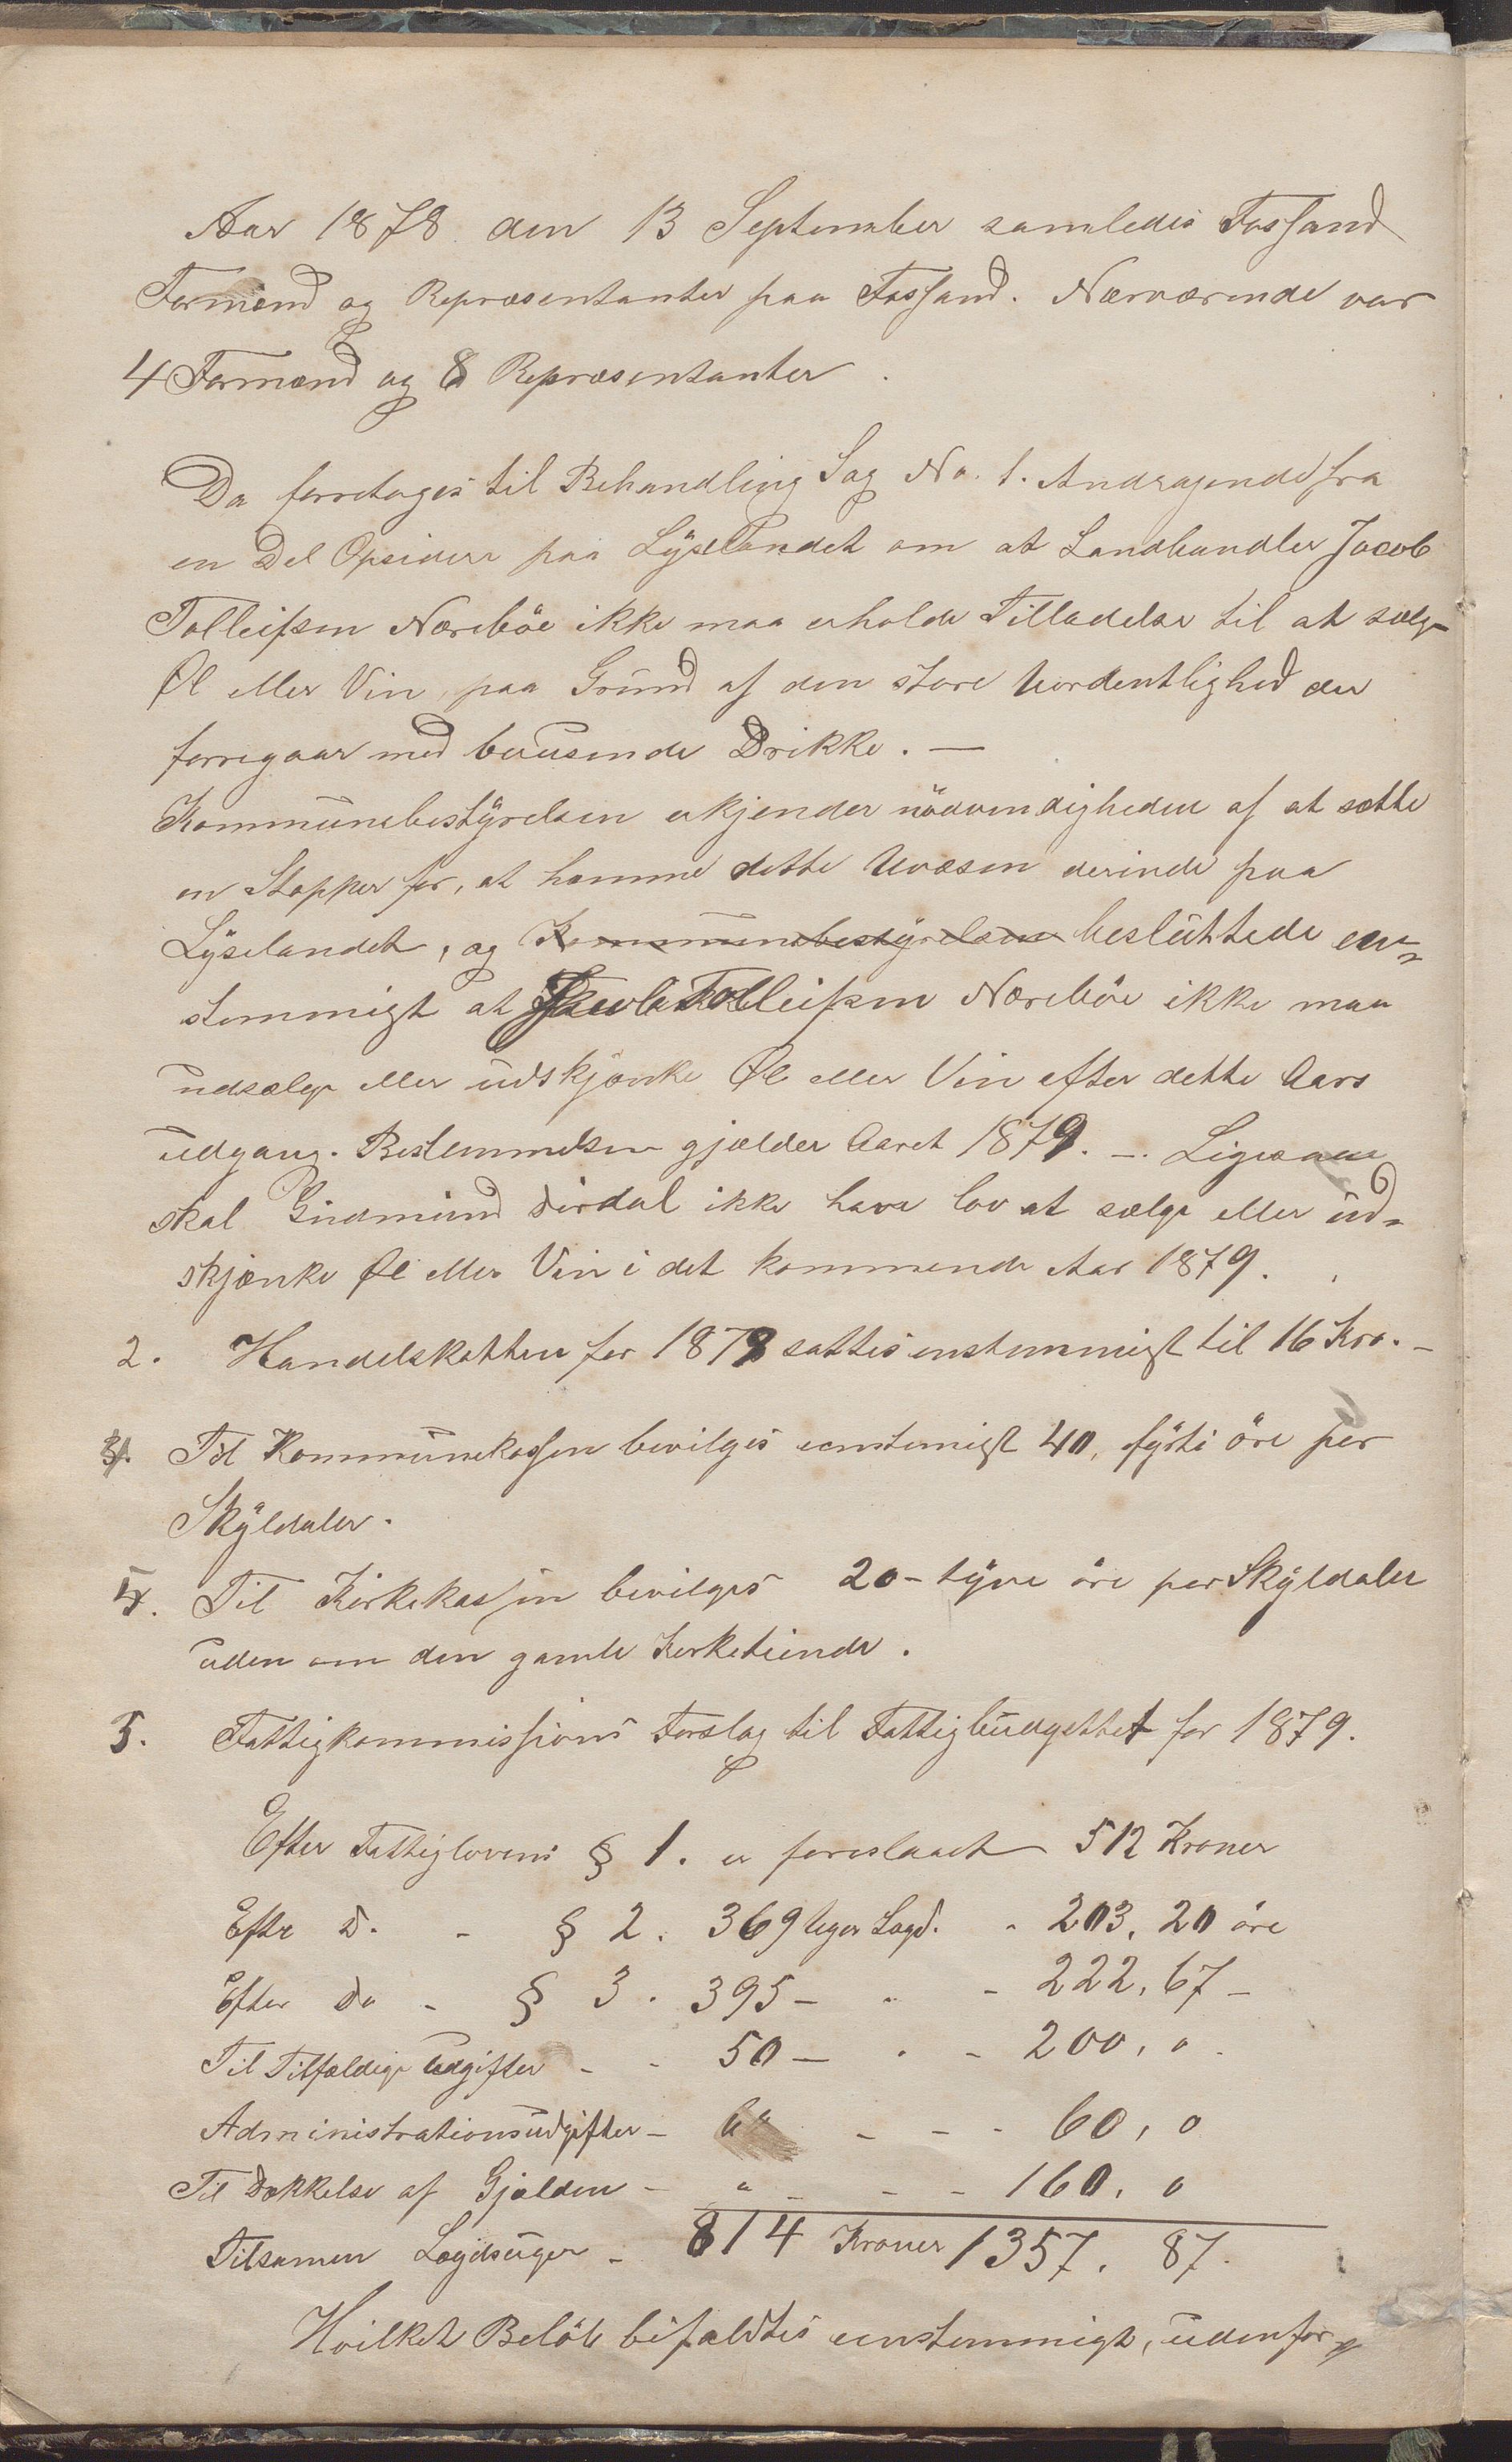 Aar 1878 den 13 September samledes Fossand
Formænd og Repræsentanter paa Fossand. Nærværende var
4 Formænd og 8 Repræsentanter.
Da forretages til Behandling Sag No. 1. Andragende fra
en Del Opsidere paa Lyselandet om at Landhandler Jacob
Tolleifsen Næreböe ikke maa erholde Tilladelse til at sælge
Øl eller Vin, paa Grund af den store Uordentlighed der
forregaar med berusende Drikke. —
Kommunebestyrelsen erkjender nödvendigheden af at sætte
en Stopper for, at hæmme dette Uvæsen derinde paa
Lyselandet, og Kommunebestyrelsen besluttede een-
stemmigt at Jacob Tolleifsen Næreböe ikke maa
udsælge eller udskjænke Øl eller Vin efter dette Aars
udgang. Bestemmelsen gjælder Aaret 1879. —. Ligesaa
skal Gudmund Dirdal ikke have lov at sælge eller ud-
skjænke Øl eller Vin i det kommende Aar 1879.
2. Handelskatten for 1879 sattes enstemmigt til 16 Kro. —
3. Til Kommunekassen bevilges eenstemigt 40, fyrti öre per
Skyldaler.
4. Til Kirkekassen bevilges 20 - tyve öre per Skyldaler
uden om den gamle Kirketiende.
5. Fattigkommissions Forslag til Fattigbudgettet for 1879.
Efter Fattiglovens § 1. er foreslaaet 512 Kroner
Efter D. - § 2. 369 Uger Lægd. - 203, 20 öre
Efter Do - § 3. 395 — " - 222, 67 -
Til Tilfældige Udgifter - - 50 — " - 200, 0 -
Administrationsudgifter - " - - - 60, 0
Til Dækkelse af Gjælden - " - - - 160, 0
Tilsamen Lægdsuger - 814 Kroner 1357. 87.
Hvilket Belöb bifaldtes eenstemmigt, udenfor